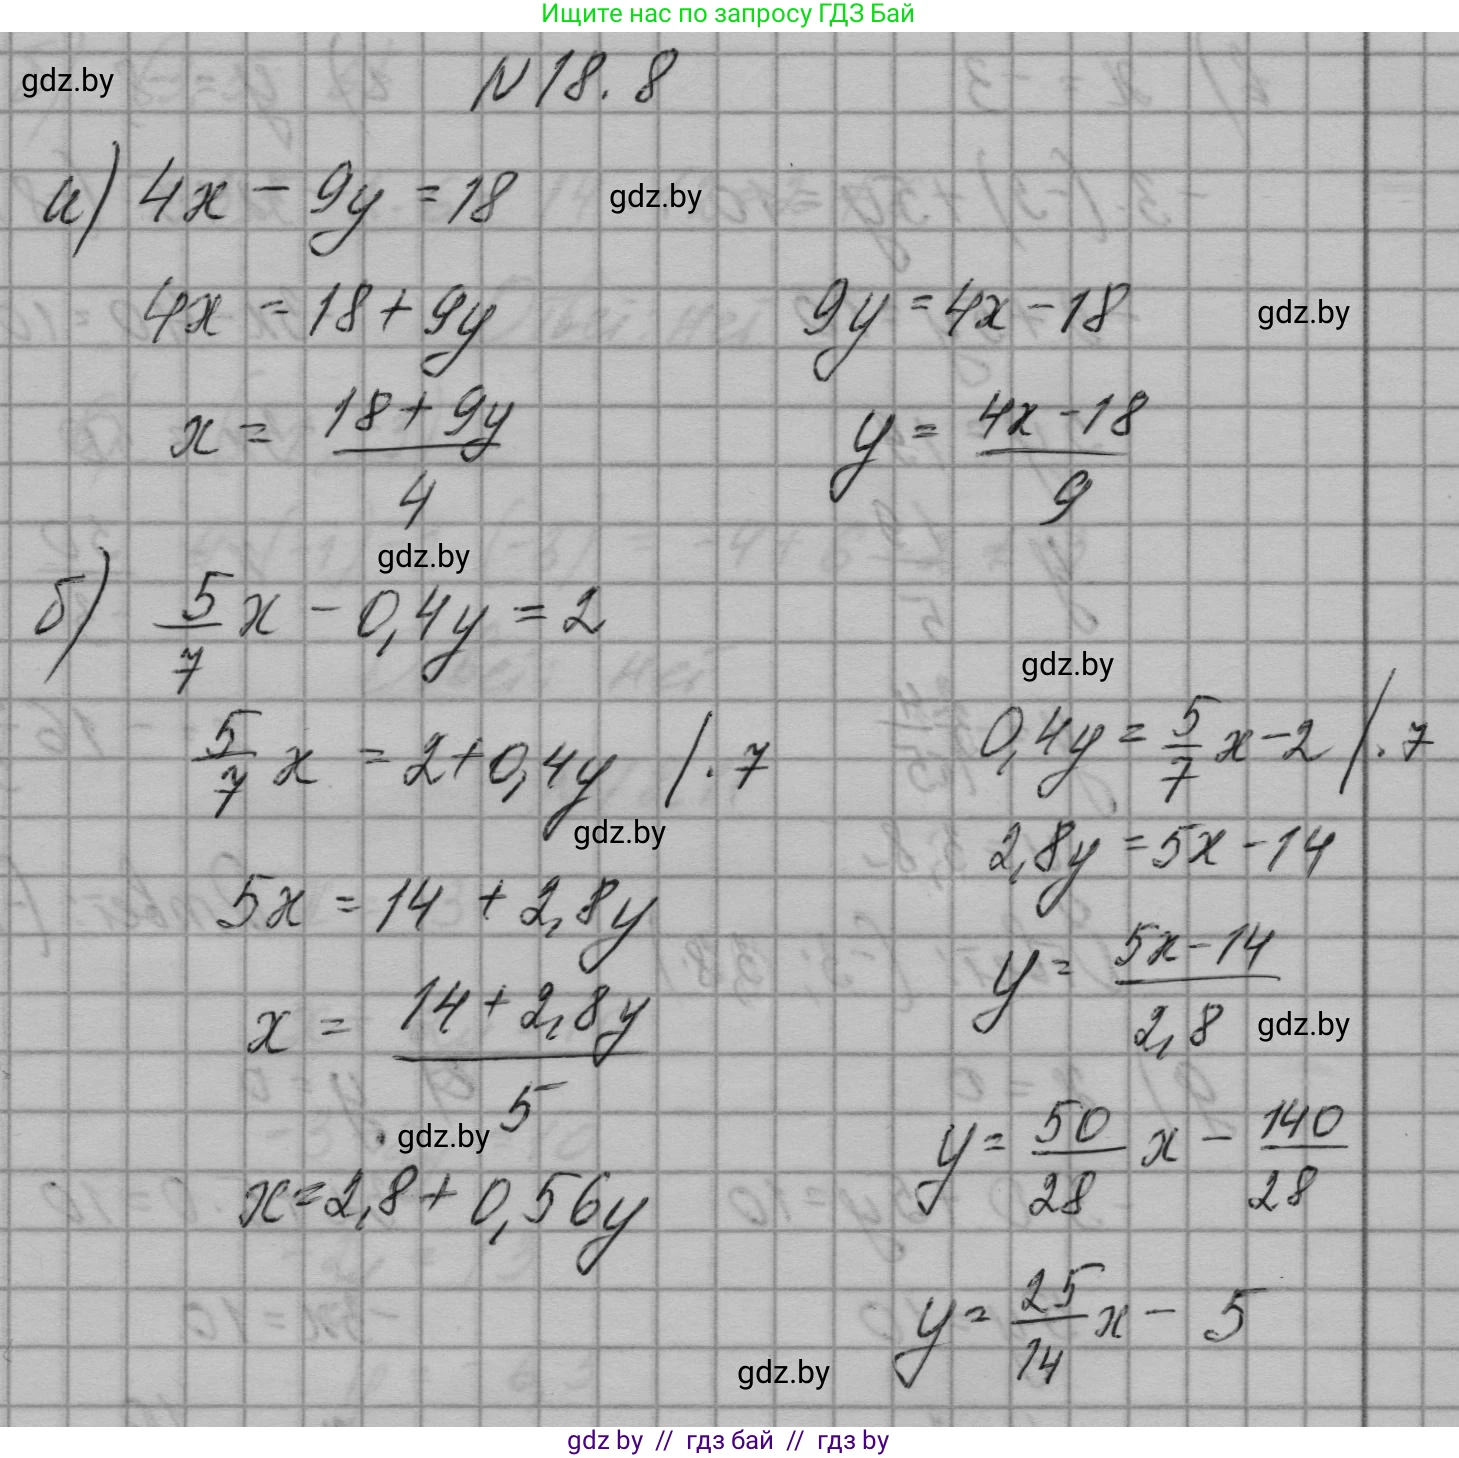 Ищите нас по запросу ГДЗ Бай
gdz.by
N18.8
а) 4x - 9y = 18
gdz.by
4x = 18 + 9y
x = (18 + 9y)/4
9y = 4x - 18
gdz.by
y = (4x - 18)/9
gdz.by
б) 5/7 x - 0,4y = 2
5/7 x = 2 + 0,4y /· 7
gdz.by
5x = 14 + 2,8y
x = (14 + 2,8y)/5
gdz.by
x = 2,8 + 0,56y
gdz.by
0,4y = 5/7 x - 2 /· 7
2,8y = 5x - 14
y = (5x - 14)/2,8
gdz.by
y = 50/28 x - 140/28
y = 25/14 x - 5
gdz.by
gdz by // гдз бай // гдз by